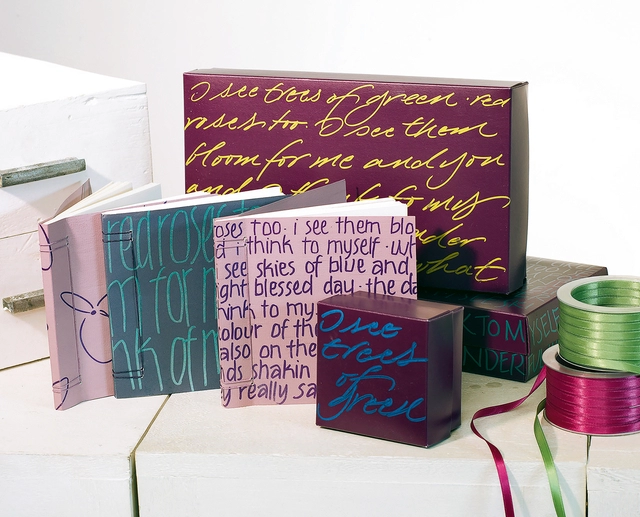 O see trees of green · red
roses too · O see them
bloom for me and you
and to my
wonder
what
red roses t
m for m
nk of m
oses too · i see them blo
d i think to myself · wh
see skies of blue and
ght blessed day · the da
ink to my
olour of th
also on the
nds shakin
y really sa
O see
trees
of
green
K TO MYSELF
NDER